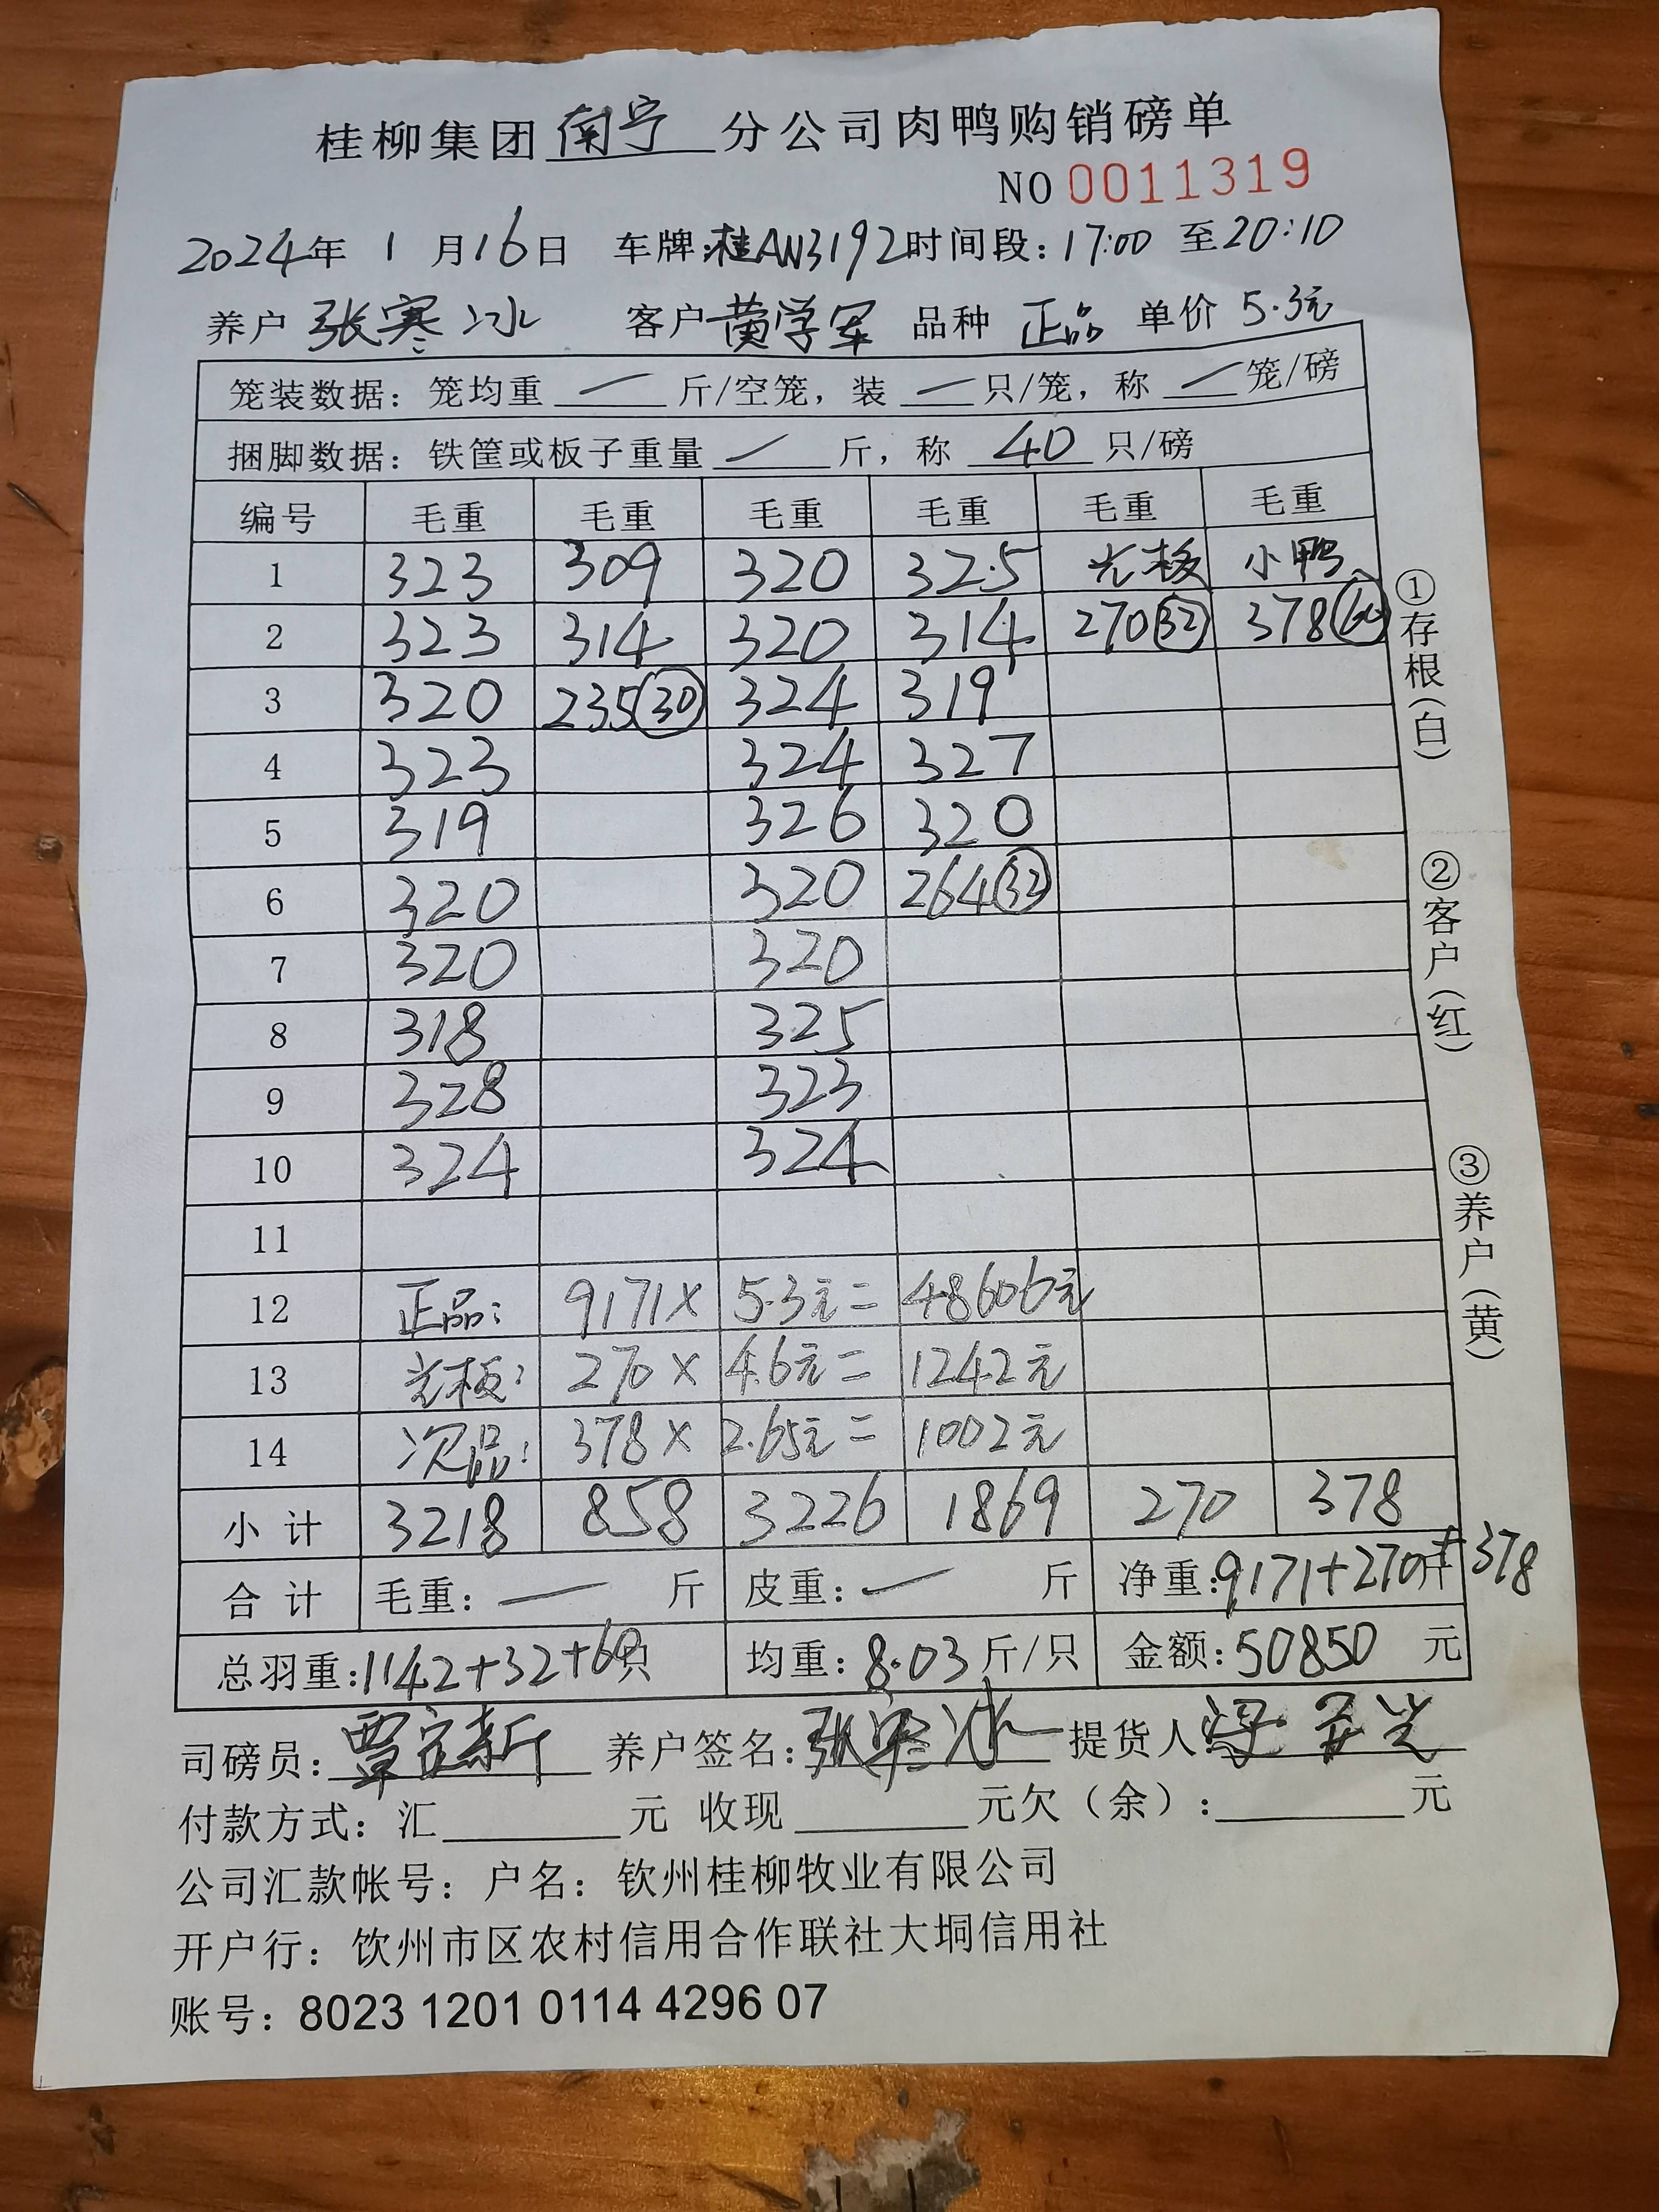 桂柳集团南宁分公司肉鸭购销磅单
NO 0011319
2024年 1 月16日 车牌:桂AN3192时间段:17:00 至20:10
养户 张寒冰 客户黄学军 品种 正品 单价 5.3元
笼装数据:笼均重 — 斤/空笼,装 — 只/笼,称 — 笼/磅
捆脚数据:铁筐或板子重量 — 斤,称 40 只/磅
编号 毛重 毛重 毛重 毛重 毛重 毛重
1 323 309 320 325 光板 小鸭
2 323 314 320 314 270(32) 378(60)
3 320 235(30) 324 319
4 323 324 327
5 319 326 320
6 320 320 264(32)
7 320 320
8 318 325
9 328 323
10 324 324
11
12 正品: 9171× 5.3元= 48606元
13 光板: 270× 4.6元= 1242元
14 次品: 378× 2.65元= 1002元
小计 3218 858 3226 1869 270 378
合计 毛重: — 斤 皮重: — 斤 净重:9171+270斤+378
总羽重:1142+32+60只 均重:8.03斤/只 金额:50850 元
司磅员: 养户签名:张寒冰 提货人
付款方式:汇 元 收现 元欠(余): 元
公司汇款帐号:户名:钦州桂柳牧业有限公司
开户行:饮州市区农村信用合作联社大垌信用社
账号:8023 1201 0114 4296 07
①存根(白)
②客户(红)
③养户(黄)